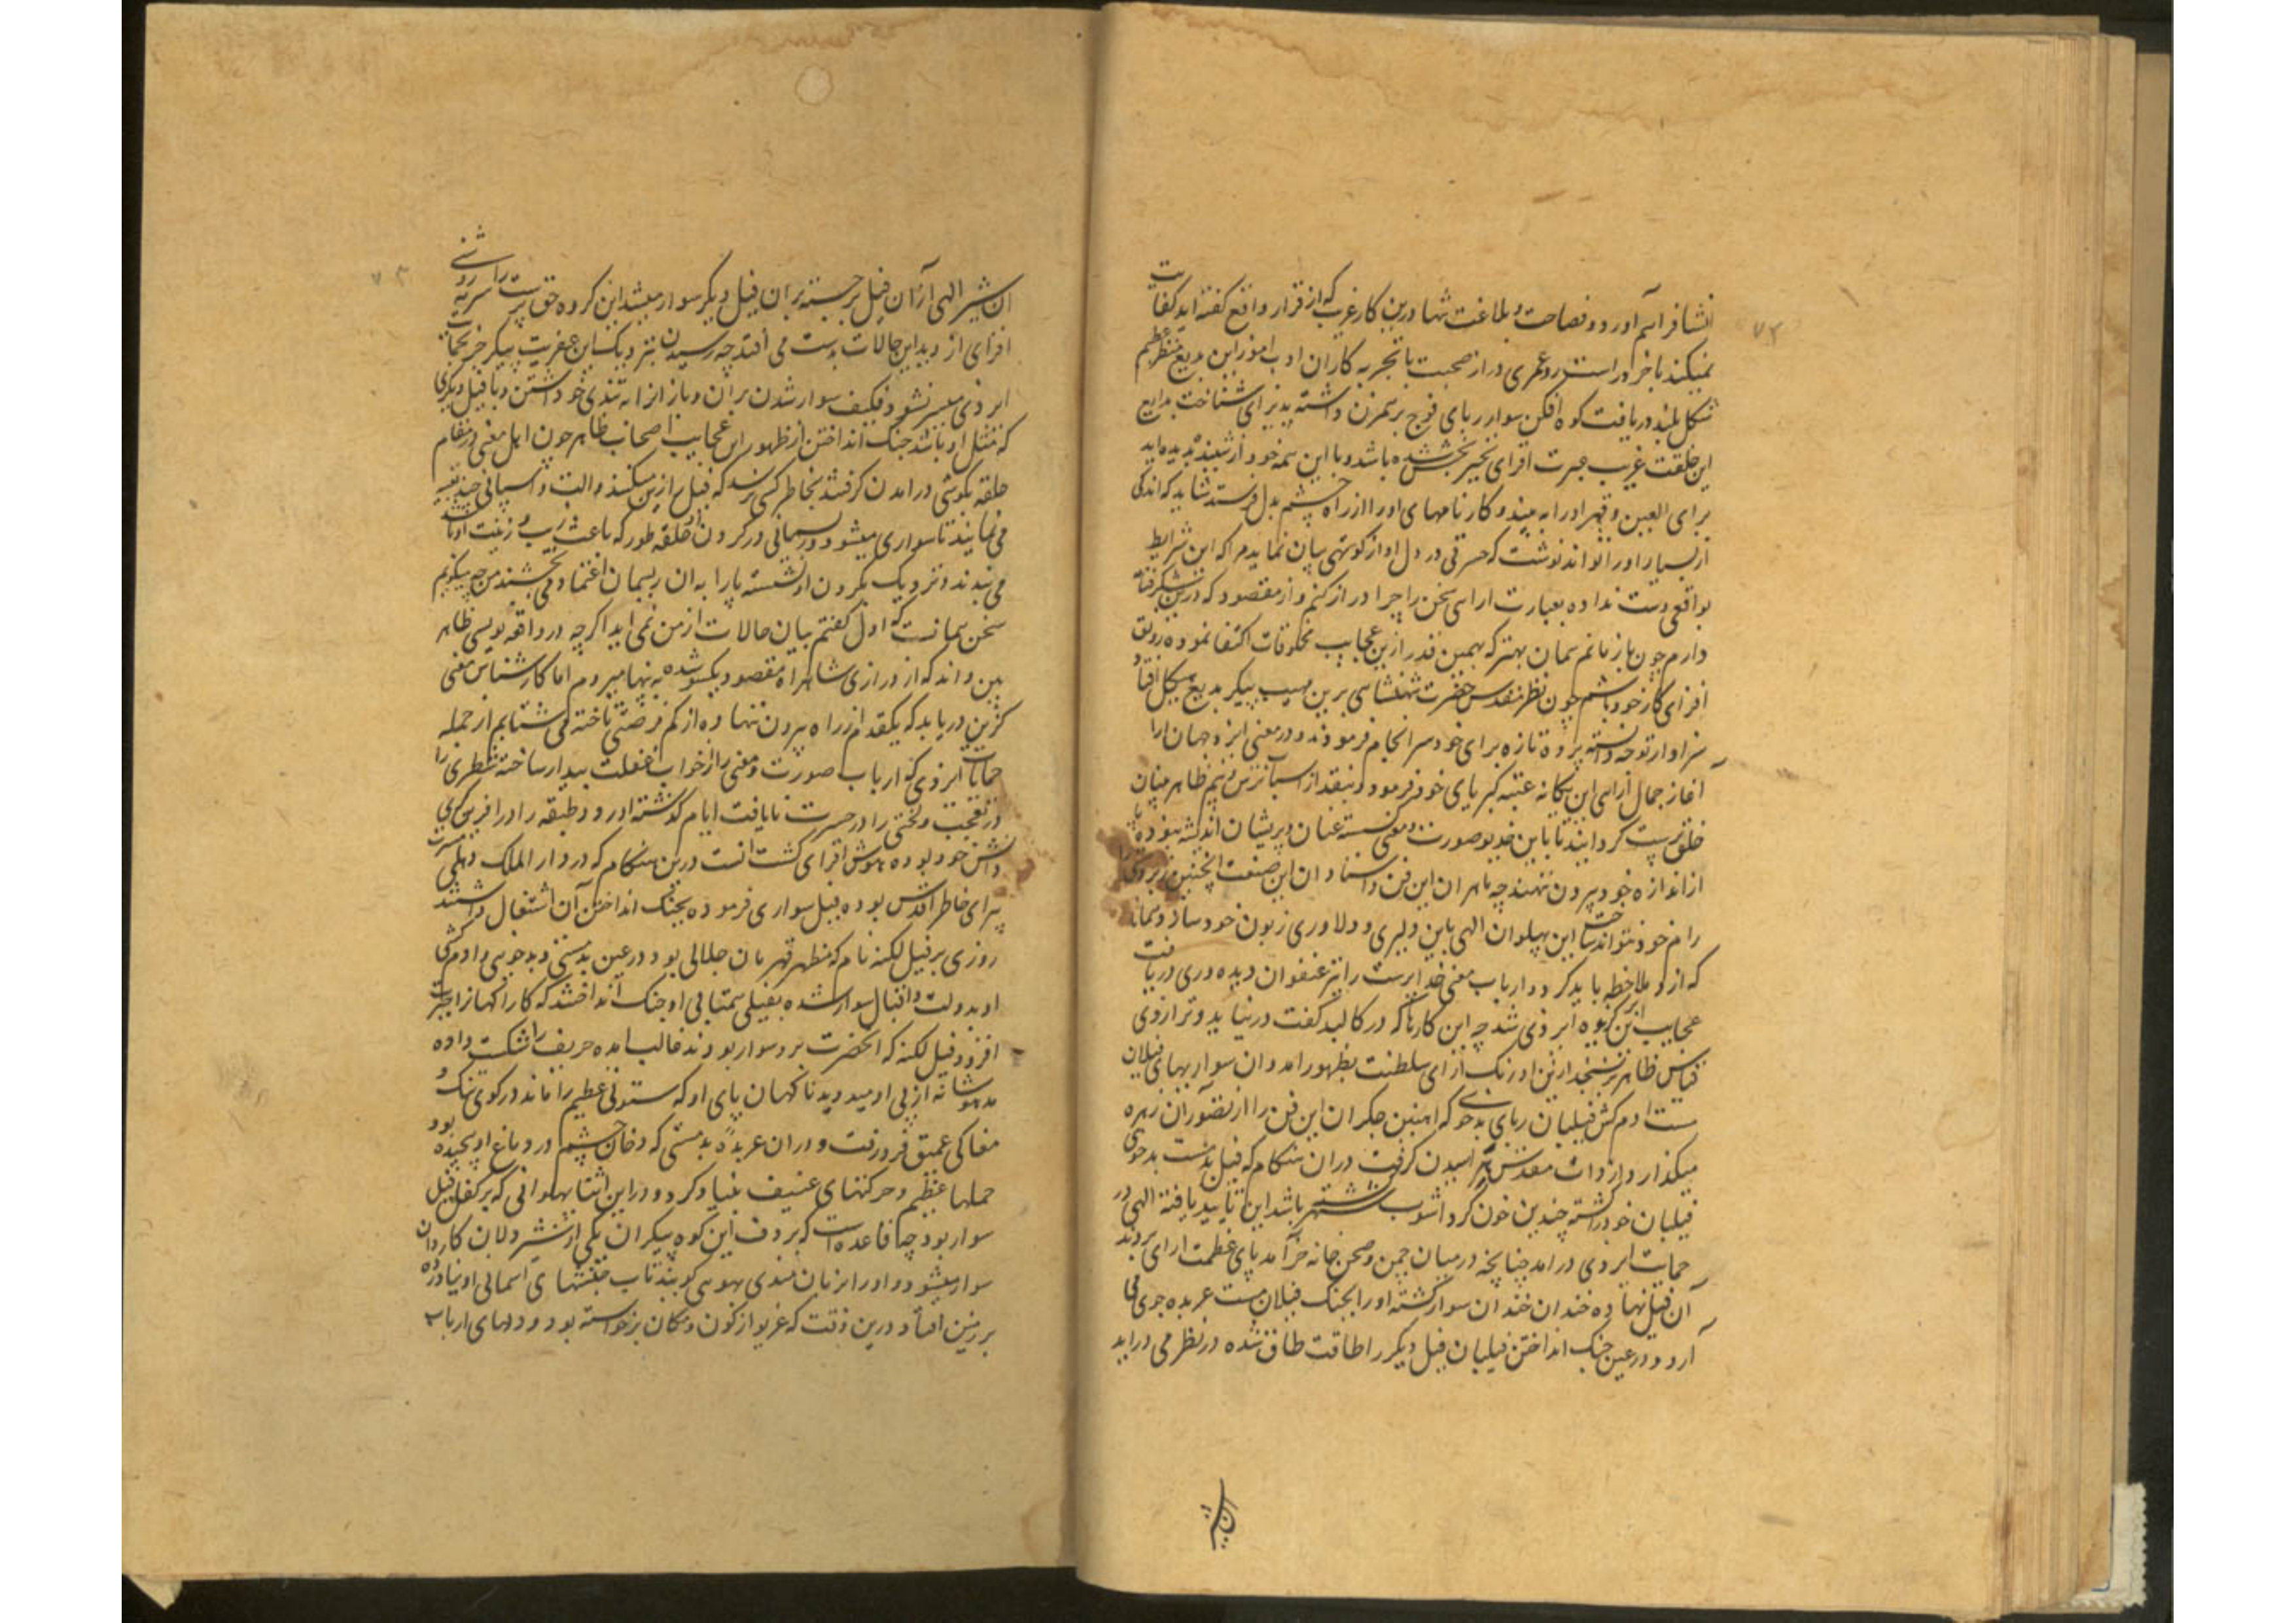 انشا فراهم آورد و فصاحت و بلاغت شما درین کار غریب که از قرار واقع گفته اید کفایت
نمیکند تا خرد راست رو عمری دراز صحبت با تجربه کاران ادب اموز این بدیع منظر عظیم
شکل بلند دریافت کوه افکن سوار ربای فوج برهمزن داشته پذیرای شناخت بدایع
این خلقت غریب عبرت افزای تحیر بخش شده باشد و با این همه خود از شنیده بدیده اید
برای العین و قهر او را به بیند و کارنامهای او را از راه چشم بدل فرستد شاید که اندکی
از بسیار او را تواند نوشت که حسرتی در دل او از کوتهی بیان نماید مرا که این شرایط
بواقعی دست نداده بعبارت ارایی سخن را چرا دراز کنم و از مقصود که در پیش گرفته
دارم چون باز مانم همان بهتر که بهمین قدر ازین عجایب مخلوقات اکتفا نموده رونق
افزای کار خود باشم چون نظر مقدس حضرت شهنشاهی برین مهیب پیکر بدیع هیکل افتاد
سزاوار توجه دانسته پرده تازه برای خود سرانجام فرمودند و در معنی ایزد جهان ارا
آغاز جمال ارایی این یگانه عتبه کبریای خود فرمود و نبقد از اسباب تربیت هم ظاهر بینان
خلق پرست گردانیدند تا باین خدیو صورت و معنی گسسته عنان و پریشان اندیشه نبوده پا
از اندازه خود بیرون ننهند چه ماهران این فن و استادان این صنعت اینچنین بزرگی را
رام خود نتوانند ساخت این پهلوان الهی باین دلیری و دلاوری زبون خود سازد و نماید
که از و ملاحظه باید کرد و ارباب معنی خدا پرست را نیز عنفوان دیده وری دریافت
عجایب این گریوه ایزدی شد چه این کارنامه که در کالبد گفت در نیاید و ترازوی
قیاس ظاهر بر نسنجد ازین اورنگ ارای سلطنت بظهور امد و ان سواریهای فیلان
مست ادم کش فیلبان ربای بدخو که اهنین جگران این فن را از تصور آن زهره
میگدازد از ذات مقدس پدید امدن گرفت در ان هنگام که فیل بدمست بدخوی
فیلبان خود را کشته چندین خون کرد و اشوب شهر باشد این تایید یافته الهی در
حمایت ایزدی در امد چنانچه در میان چمن و صحن خانه خرامد پای عظمت ارای بر دند
آن فیل نهاده خندان خندان سوار گشته او را بجنگ فیلان مست عربده جوی می
آرد و در عین جنگ انداختن فیلبان فیل دیگر را طاقت طاق شده در نظر می دراید
ان شیر
ان شیر الهی از ان فیل برجسته بران فیل دیگر سوار میشد این گروه حق پرست را سرمه روشنی
افزای از دید این حالات بدست می افتد چه رسیدن نزدیک این عفریت پیکر جز بحمایت
ایزدی میسر نشود فکیف سوار شدن بران و باز از انه تندی خو داشتن و با فیل دیگری
که مثل او باشد جنگ انداختن از ظهور این عجایب اصحاب ظاهر چون اهل معنی در مقام
حلقه بگوشی درامدن گرفتند بخاطر کسی نرسد که فیل را زین میکنند و الت و اسپانی چند تعبیه
می نمایند تا سواری میشود و ریسمانی در گردن او حلقه طور که باعث زیب و زینت او باشد
می بندند و نزدیک بگردن او نشسته پا را به ان ریسمان اعتماد می بخشند من چه میگویم
سخن همانست که اول گفتم بیان حالات از من نمی اید اگر چه در واقعه نویسی ظاهر
بین داند که از درازی شاهراه مقصود یکسو شده به تنها میروم اما کارشناس معنی
گزین دریابد که یکقدم از راه بیرون ننهاده از کم فرصتی تاخته می شتابم از جمله
حمایات ایزدی که ارباب صورت و معنی را از خواب غفلت بیدار ساخته شطری را
در تعجب و لختی را در حسرت نایافت ایام گذشته اورد و طبقه را در افرین گوی
دانش خود بوده هوش افزای گشت انست درین هنگام که در دار الملک دهلی مسرت
پیرای خاطر اقدس بوده فیل سواری فرموده بجنگ انداختن آن اشتغال داشتند
روزی بر فیل لکنه نام که مظهر قهرمان جلالی بود در عین بدمستی و بدخویی و ادم کشی
او بدولت و اقبال سوار شده بفیلی همتای او جنگ انداختند که کار اگهان را حیرت
افزود فیل لکنه که انحضرت برو سوار بودند غالب امده حریف را شکست داده
مدهوشانه از پی او میدوید ناگهان پای او که ستونی عظیم را ماند در گوی تنگ و
مغاکی عمیق فرو رفت و در ان عربده بدمستی که دخان خشم در دماغ او پیچیده بود
حملهای عظیم و حرکتهای عنیف بنیاد کرد و در این اثنا پهلوانی که بر کفل فیل
سوار بود چنانچه قاعده است که بر دف این کوه پیکران یکی از شیر دلان کاردان
سوار میشود و او را بزبان هندی بهوی گویند تاب جنبشهای اسمانی او نیاورده
بر زمین افتاد درین وقت که غریو از کون و مکان برخواسته بود و دلهای ارباب